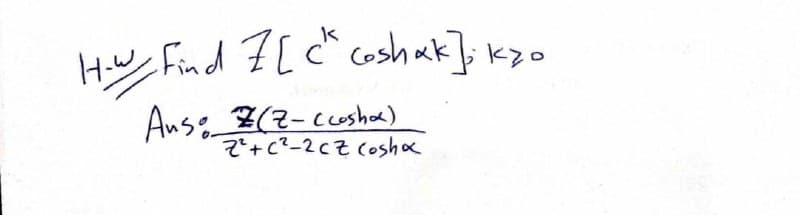 H.W Find Z[c^k cosh αk]; k≥0
Ans: Z(Z-c cosh α)
Z²+c²-2cZ cosh α